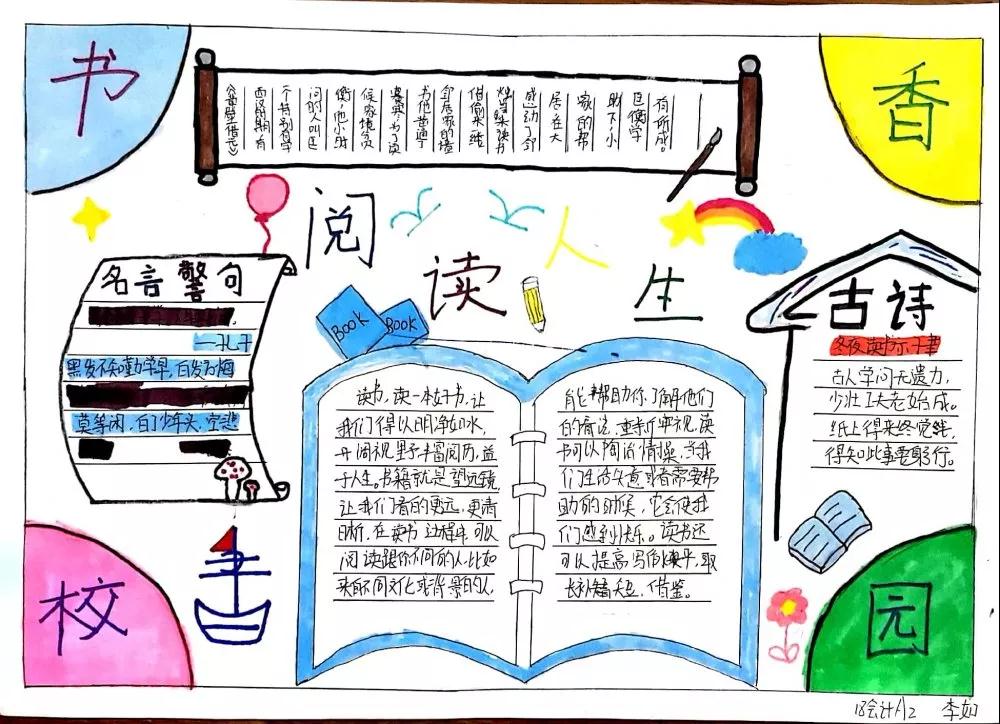 书
香
校
园
阅
读
人
生
《凿壁借光》
西汉时期,有
个特别有学
问的人叫匡
衡,他小时
候家境贫
寒,为了读
书他凿通
邻居家的墙
偷来一缕
感动了邻
居。在大
家的帮
助下,小
匡衡学
有所成。
名言警句
—孔子
黑发不知勤学早,白发方悔
莫等闲,白了少年头,空悲
BOOK
BOOK
读书,读一本好书,让
我们得以明净如水,
开阔视野丰富阅历,益
于人生。书籍就是望远镜
让我们看的更远,更清
晰,在读书过程中,可以
阅读跟你不同的人,比如
来自不同文化或背景的人,
能帮助你了解他们
的看法,重新审视,读
书可以陶冶情操,当我
们生活失意或者需要帮
助的时候,它会使我
们感到快乐。读书还
可以提高写作水平,取
长补短,借鉴。
古诗
冬夜读书示子聿
古人学问无遗力,
少壮工夫老始成。
纸上得来终觉浅,
得知此事要躬行。
18会计A2 李如